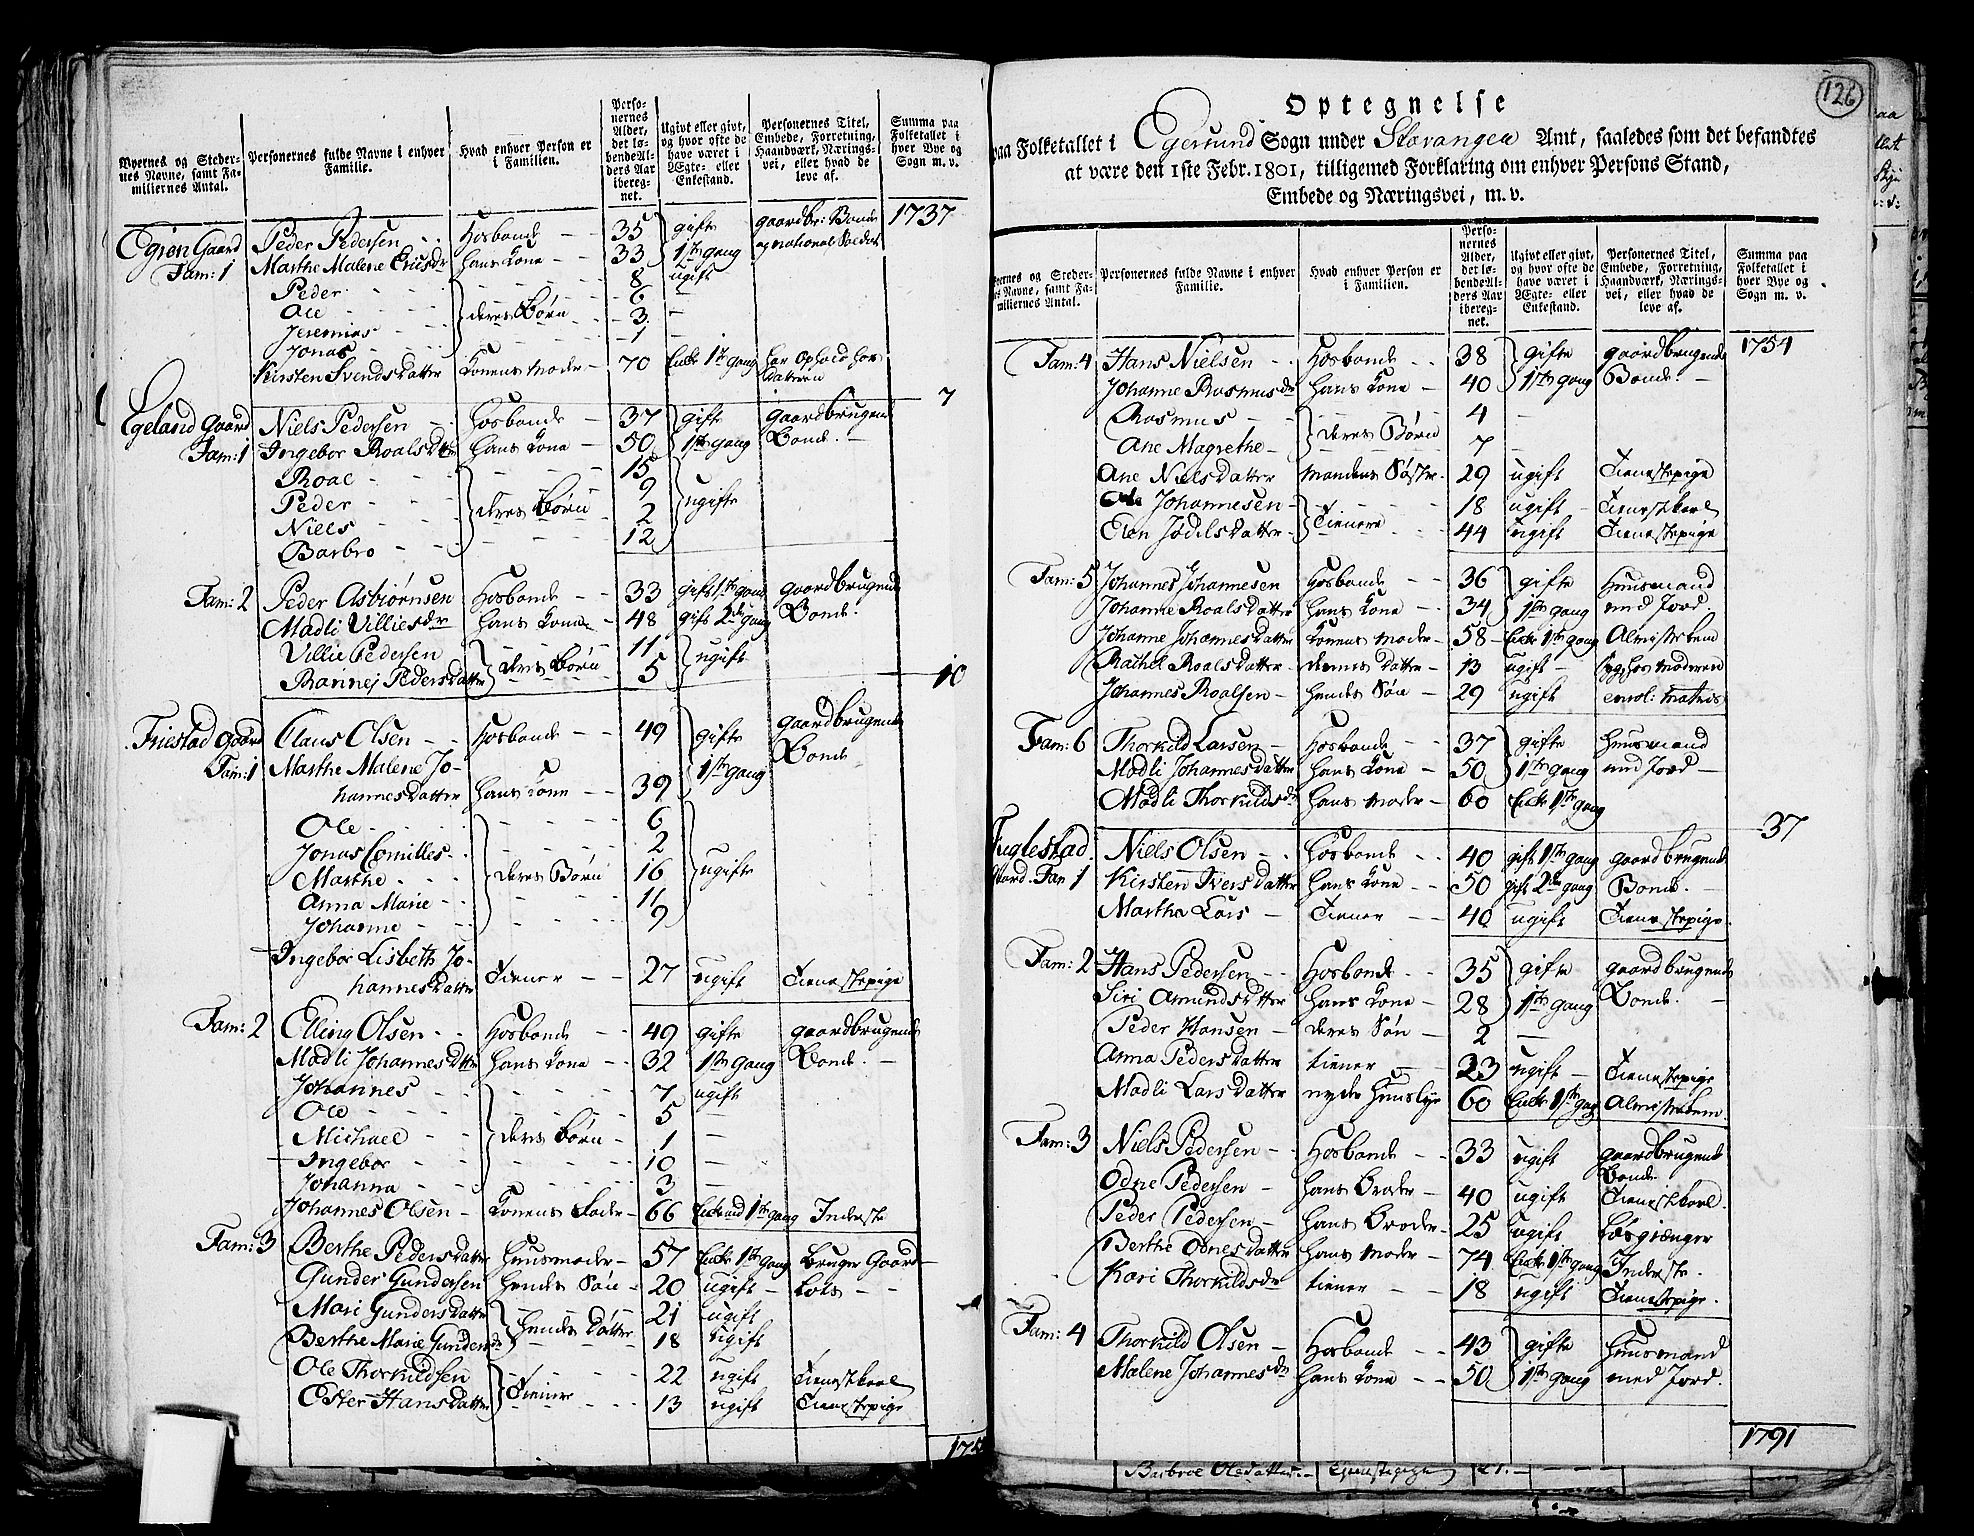 Byernes og Stedernes Navne, samt Familiernes Antal. | Personernes fulde Navne i enhver Familie. | Hvad enhver Person er i Familien. | Personernes Alder, det løbende Alders Aar iberegnet. | Ugivt eller givt, og hvor ofte de have været i Ægte- eller Enkestand. | Personernes Titel, Embede, Forretning, Haandværk, Næringsvei, eller hvad de leve af. | Summa paa Folketallet i hver Bye og Sogn m. v.
Egrøn Gaard | Peder Pedersen | Hosbonde | 35 | gifte | gaardbr: Bonde | 1737
Fam: 1 | Marthe Malene Eriisdr | hans Kone | 33 | 1ste gang | og national Soldat
Peder | 8 | ugift
Ole | deres Børn | 6
Jeremias | 3
Jonas | 1
Kirsten Svends Datter | Konens Moder | 70 | Enke 1te gang | har Ophold hos Datteren
7
Egeland Gaard | Niels Pedersen | Hosbonde | 37 | gifte | gaardbrugende
Fam: 1 | Ingebor Roals Dtr | hans Kone | 50 | 1ste gang | Bonde
Roal | 15
Peder | deres Børn | 9 | ugifte
Niels | 2
Barbro | 12
Fam: 2 | Peder Asbiørnsen | Hosbonde | 33 | gift 1ste gang | gaardbrugende
Madli Villiesdr | hans Kone | 48 | gift 2den gang | Bonde
Villie Pedersen | deres Børn | 11 | ugift
Rannej Peders Datter | 5
10
Friestad Gaard | Claus Olsen | Hosbonde | 49 | gifte | gaardbrugende
Fam: 1 | Marthe Malene Jo- | 1ste gang | Bonde
hannes Datter | hans Kone | 39
Ole | 6
Jonas Comilles | 2
Marthe | deres Børn | 16 | ugifte
Anna Marie | 11
Johanne | 9
Ingebor Lisbeth Jo-
hannes Datter | Tiener | 27 | ugift | Tienestepige
Fam: 2 | Elling Olsen | Hosbonde | 49 | gifte | gaardbrugende
Madli Johannes Datter | hans Kone | 32 | 1ste gang | Bonde
Johannes | 7 | ugift
Ole | 5
Michael | deres Børn | 1
Ingebor | 10
Johanna | 3
Johannes Olsen | Konens Fader | 66 | Enkemd 1ste gang | Inderste
Fam: 3 | Berthe Peders Datter | Huusmoder | 57 | Enke 1ste gang | bruger Gaard
Gunder Gundersen | hendes Søn | 20 | ugift | Lots
Mari Gunders Datter | hendes Døtter | 21 | ugift
Berthe Marie Gundersdr | 18 | ugift
Ole Thorkildsen | Tienere | 22 | ugift | Tienestkarl
Ester Hans Datter | 13 | ugift | Tienestepige
126
Optegnelse
paa Folketallet i Egersund Sogn under Stavanger Amt, saaledes som det befandtes
at være den 1ste Febr. 1801, tilligemed Forklaring om enhver Persons Stand,
Embede og Næringsvei, m. v.
Byernes og Stedernes Navne, samt Familiernes Antal. | Personernes fulde Navne i enhver Familie. | Hvad enhver Person er i Familien. | Personernes Alder, det løbende Alders Aar iberegnet. | Ugivt eller givt, og hvor ofte de have været i Ægte- eller Enkestand. | Personernes Titel, Embede, Forretning, Haandværk, Næringsvei, eller hvad de leve af. | Summa paa Folketallet i hver Bye og Sogn m. v.
Fam: 4 | Hans Nielsen | Hosbonde | 38 | gifte | gaardbrugende | 1754
Johanne Rasmusdr | hans Kone | 40 | 1ste gang | Bonde
Rasmus | deres Børn | 4
Ane Magrethe | 7
Ane Niels Datter | Mandens Søster | 29 | ugift | Tienestepige
Ole Johannesen | Tienere | 18 | ugift | Tienestkarl
Elen Jødils Datter | 44 | ugift | Tienestepige
Fam: 5 | Johannes Johannesen | Hosbonde | 36 | gifte | Huusmand
Johanne Roals Datter | hans Kone | 34 | 1ste gang | med Jord
Johanne Johannes Datter | Konens Moder | 58 | Enke 1ste gang | Almisselem
Rachel Roals Datter | dennes Datter | 13 | ugift | hos Moderen
Johannes Roalsen | hendes Søn | 29 | ugift | enrol: Matros
Fam: 6 | Thorkild Larsen | Hosbonde | 37 | gifte | Huusmand
Madli Johannes Datter | hans Kone | 50 | 1ste gang | med Jord
Madli Thorkildsdr | hans Moder | 60 | Enke 1ste gang
37
Fuglestad | Niels Olsen | Hosbonde | 40 | gift 1ste gang | gaardbrugende
Gaard. Fam 1 | Kirsten Ivers Datter | hans Kone | 50 | gift 2den gang | Bonde
Martha Lars | Tiener | 40 | ugift | Tienestepige
Fam: 2 | Hans Pedersen | Hosbonde | 35 | gifte | gaardbrugende
Siri Amunds Datter | hans Kone | 28 | 1ste gang | Bonde
Peder Hansen | deres Søn | 2
Anna Peders Datter | tiener | 23 | ugift | Tienestepige
Madli Lars Datter | nyder Huuslye | 60 | Enke 1ste gang | Almisselem
Fam: 3 | Niels Pedersen | Hosbonde | 33 | ugift | gaardbrugende Bonde
Odne Pedersen | hans Broder | 40 | ugift | Tienestkarl
Peder Pedersen | hans Broder | 25 | ugift | Løsgiænger
Berthe Odnes Datter | hans Moder | 74 | Enke 1ste gang | Inderste
Kari Thorkildsdr | tiener | 18 | ugift | Tienestepige
Fam: 4 | Thorkild Olsen | Hosbonde | 43 | gifte | Huusmand
Malene Johannesdr | hans Kone | 50 | 1ste gang | med Jord
1791
Barbroe Olsdatter | Tjenestepige | 27